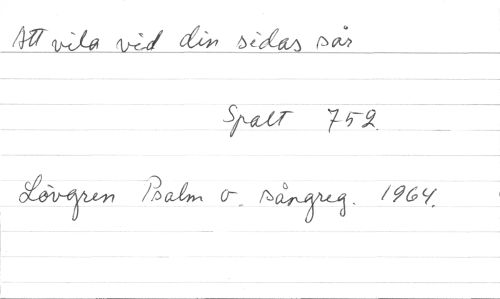 Att vila vid din sidas sår
Spalt 752.
Lövgren Psalm o. sångreg. 1964.